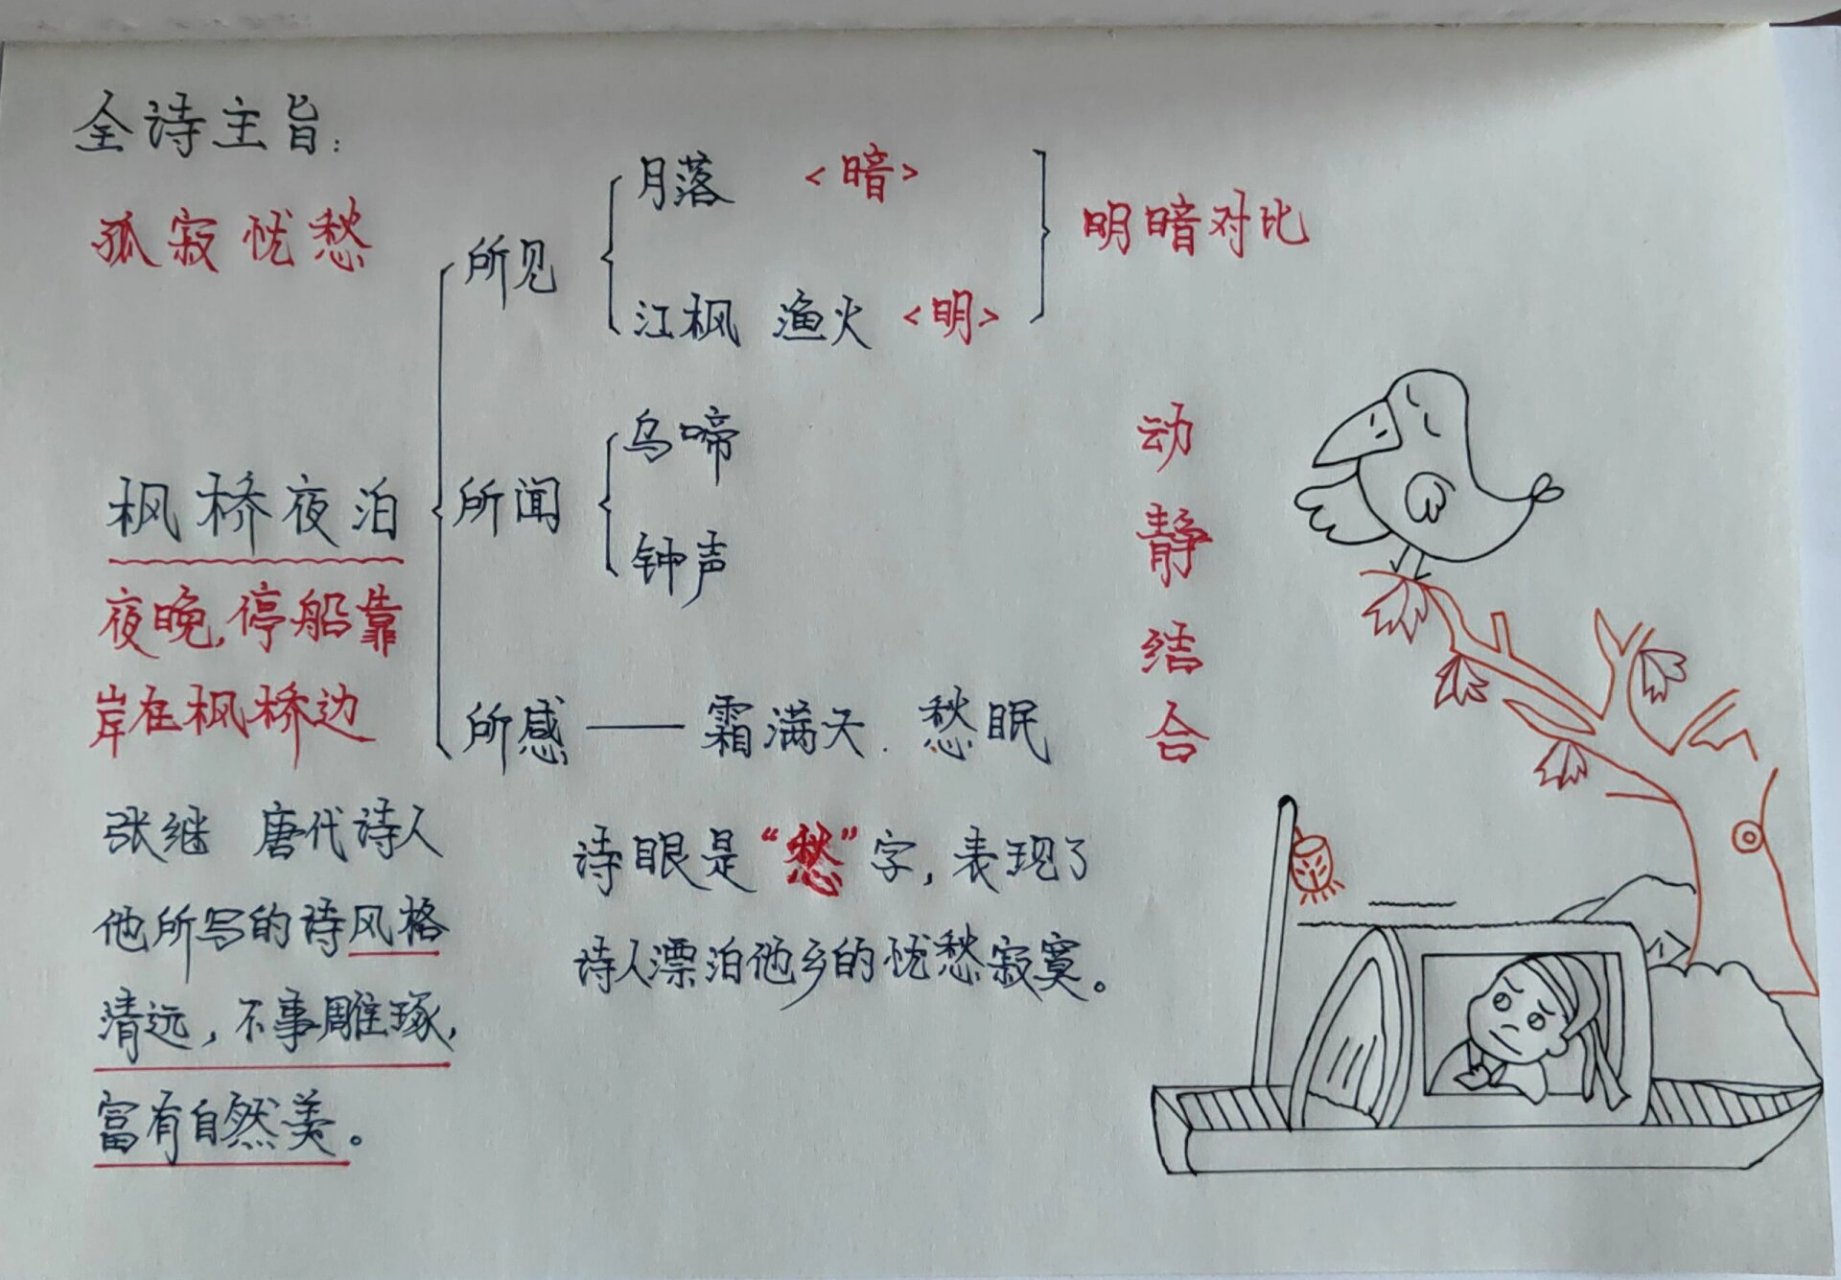 全诗主旨:
孤寂忧愁
枫桥夜泊
夜晚,停船靠
岸在枫桥边
所见
月落 <暗>
江枫 渔火 <明>
明暗对比
所闻
乌啼
钟声
所感 —— 霜满天. 愁眠
动
静
结
合
张继 唐代诗人
他所写的诗风格
清远,不事雕琢,
富有自然美。
诗眼是“愁”字,表现了
诗人漂泊他乡的忧愁寂寞。